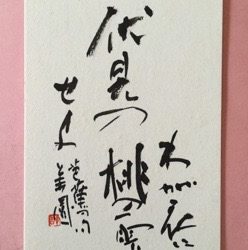 わが衣に
伏見の
桃の雫
せよ
芭蕉の句